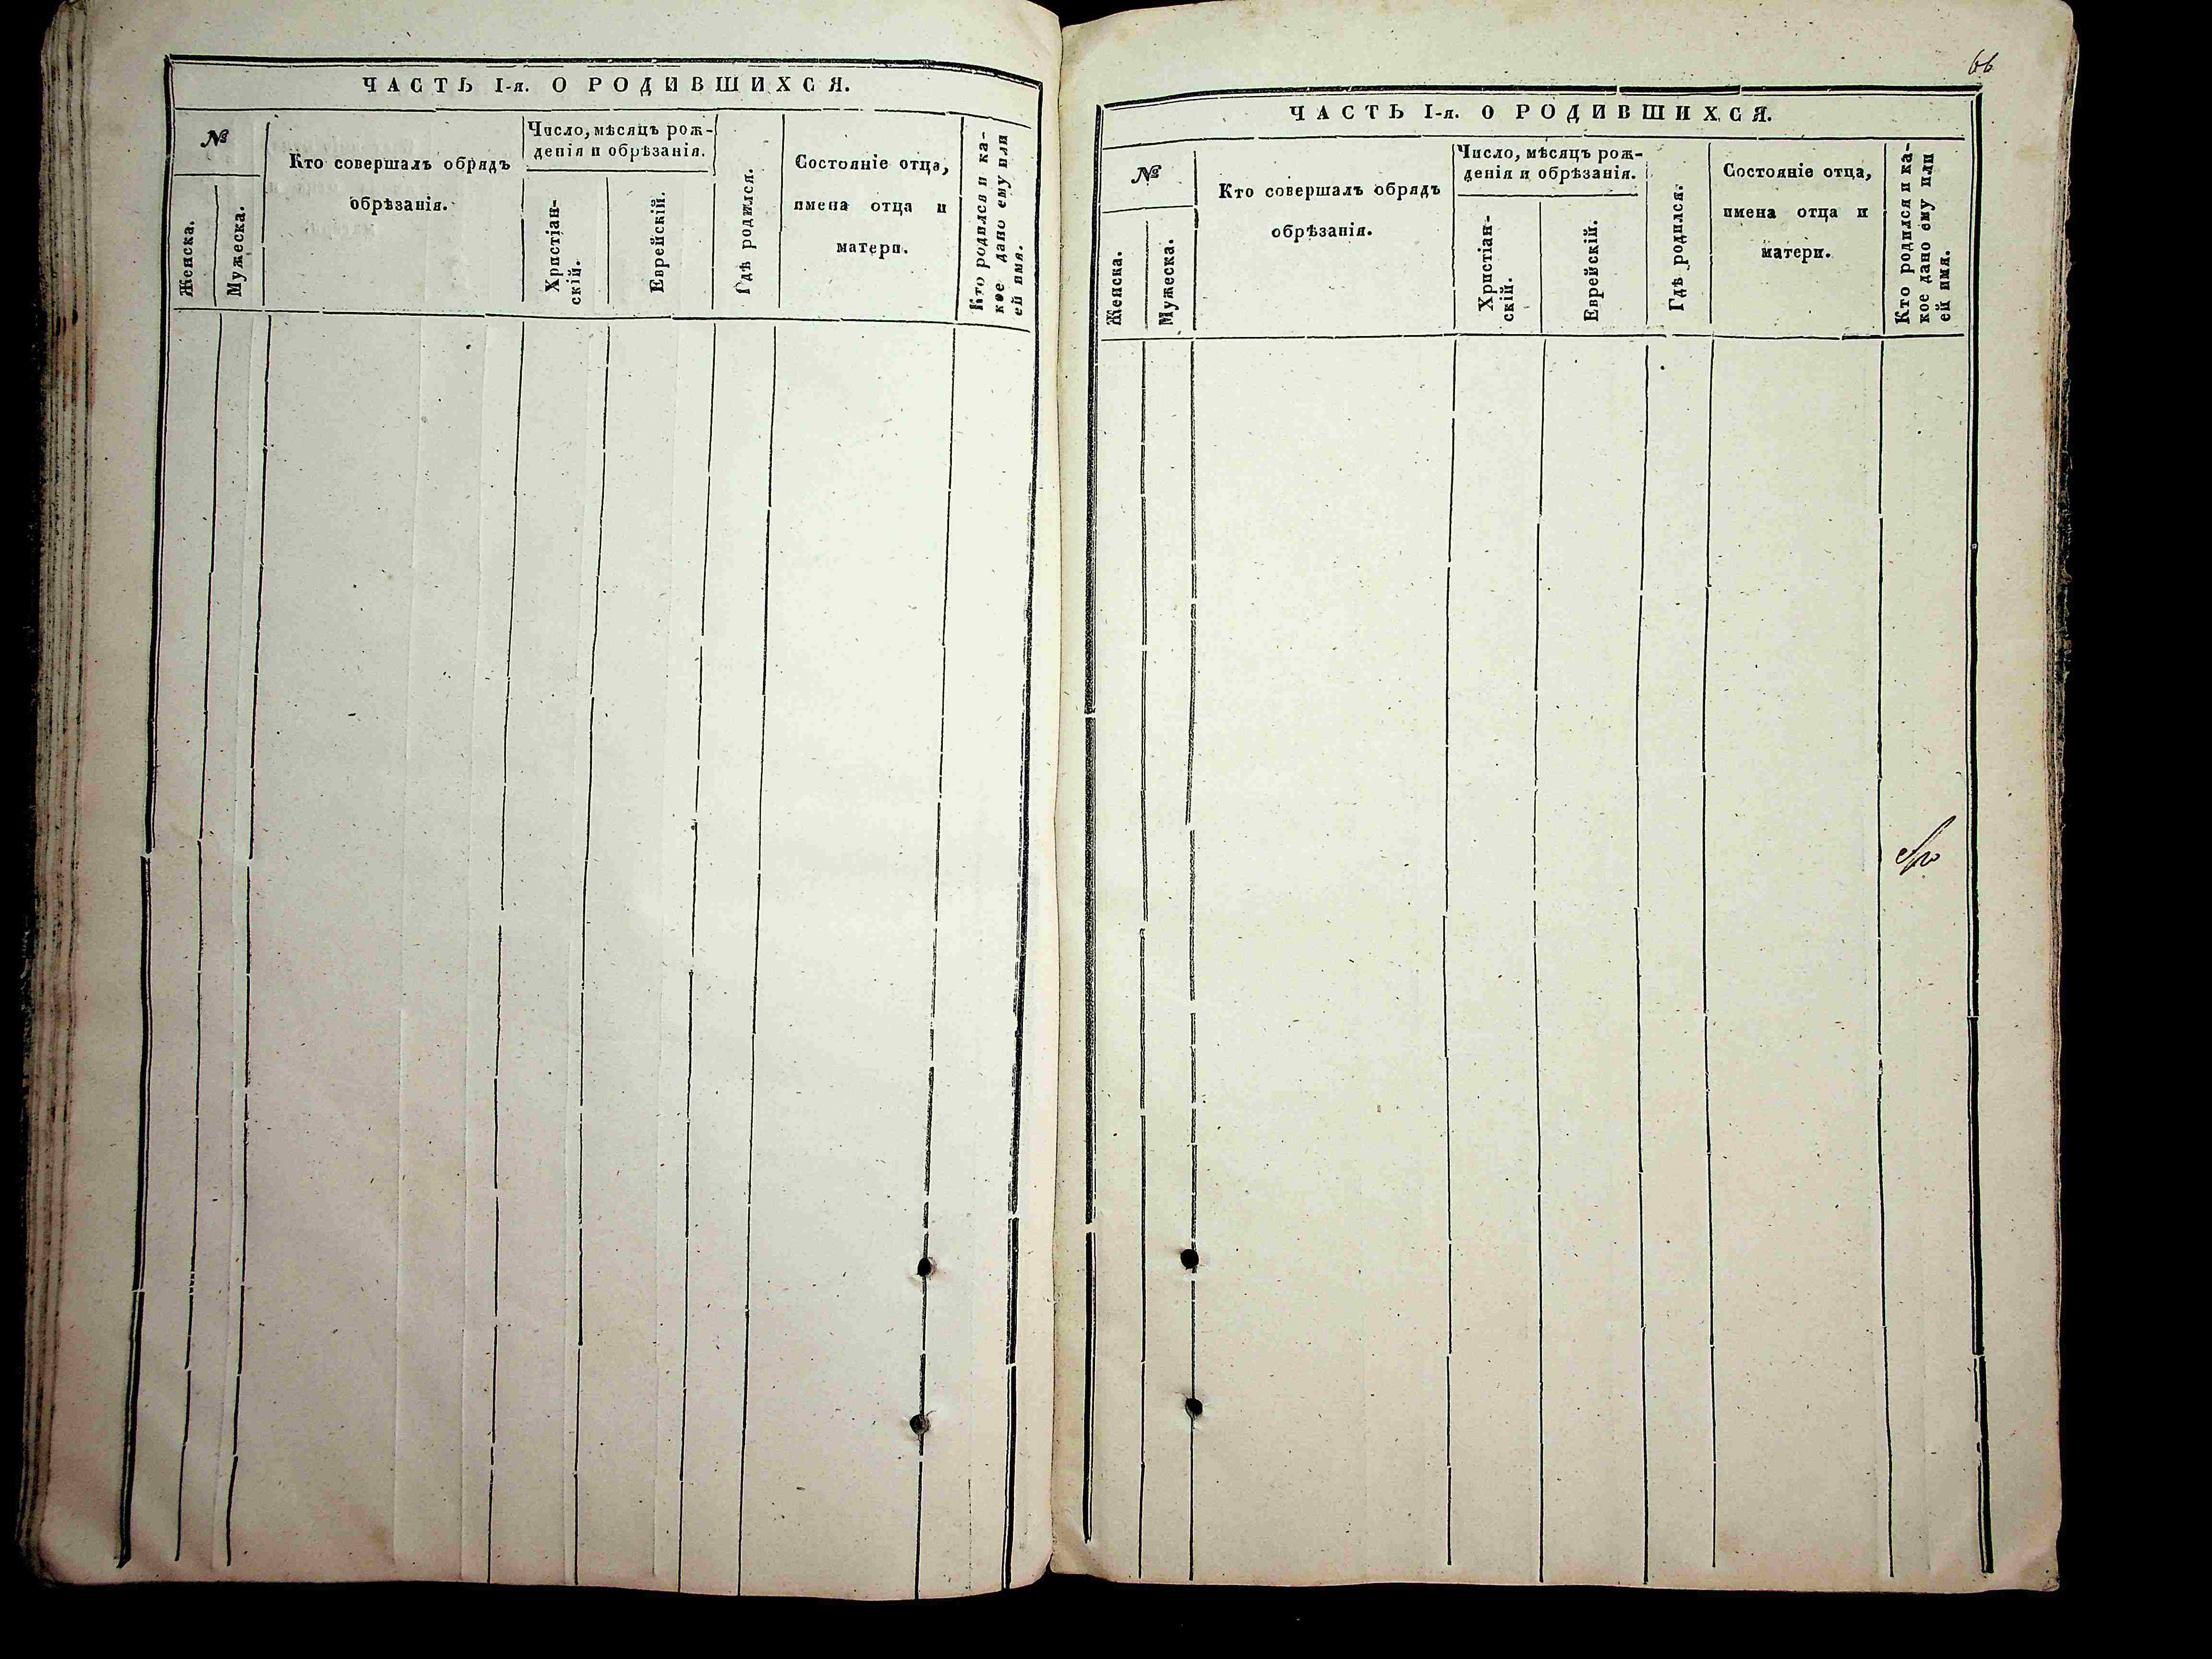 ЧАСТЬ I-я. О РОДИВШИХСЯ.
№
Женска.
Мужеска.
Кто совершалъ обрядъ
обрѣзанія.
Число, мѣсяцъ рож-
денія и обрѣзанія.
Христіан-
скій.
Еврейскій.
Гдѣ родился.
Состояніе отца,
имена отца и
матери.
Кто родился и ка-
кое дано ему или
ей имя.
66
ЧАСТЬ I-я. О РОДИВШИХСЯ.
№
Женска.
Мужеска.
Кто совершалъ обрядъ
обрѣзанія.
Число, мѣсяцъ рож-
денія и обрѣзанія.
Христіан-
скій.
Еврейскій.
Гдѣ родился.
Состояніе отца,
имена отца и
матери.
Кто родился и ка-
кое дано ему или
ей имя.